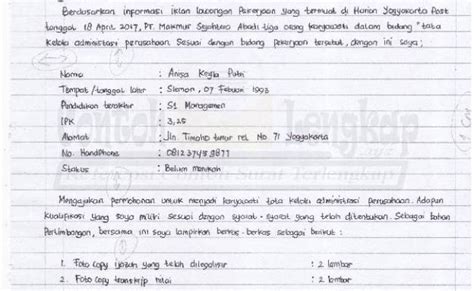 Berdasarkan informasi iklan lowongan Pekerjaan yang termuat di Harian Yogyakarta Post
tanggal 18 April 2017, PT. Makmur Sejahtera Abadi tiga orang karyawati dalam bidang "tata
Kelola administrasi perusahaan. Sesuai dengan bidang pekerjaan tersebut, dengan ini saya;
Nama : Anisa Keyla Putri
Tempat/tanggal lahir : Sleman, 07 Februari 1993
Pendidikan terakhir : S1 Managemen
IPK : 3,25
Alamat : Jln. Timoho timur rel No 71 Yogyakarta
No. Handphone : 081237459877
Status : Belum menikah
Mengajukan permohonan untuk menjadi karyawati tata kelola administrasi perusahaan. Adapun
Kualifikasi yang saya miliki sesuai dengan syarat-syarat yang telah ditentukan. Sebagai bahan
Pertimbangan, bersama ini saya lampirkan berkas-berkas sebagai berikut :
1. Foto copy ijazah yang telah dilegalisir : 2 lembar
2. Foto copy transkrip nilai : 2 lembar